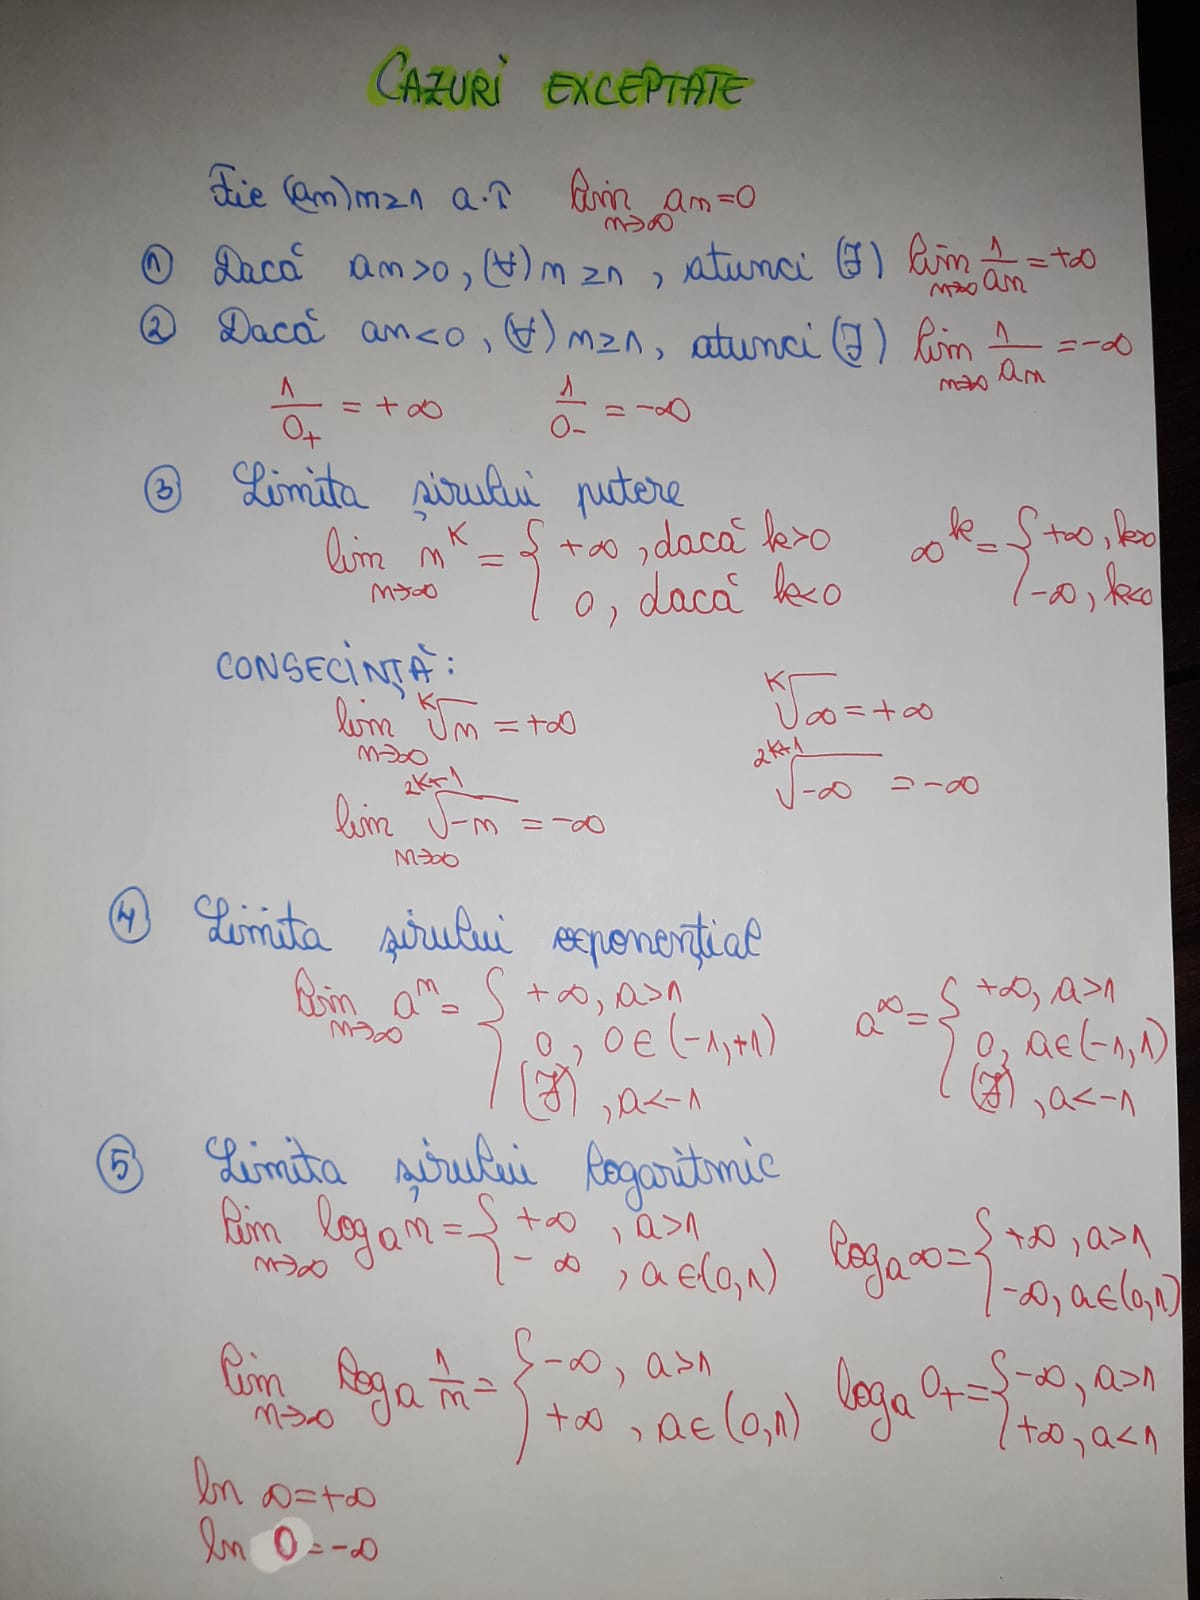 CAZURI EXCEPTATE
Fie (an)n≥1 a.î lim n→∞ an=0
① Dacă an>0, (∀) n≥1, atunci (∃) lim n→∞ 1/an = +∞
② Dacă an<0, (∀) n≥1, atunci (∃) lim n→∞ 1/an = -∞
1/0+ = +∞ 1/0- = -∞
③ Limita șirului putere
lim n→∞ n^K = { +∞, dacă k>0 ∞^k = { +∞, k>0
0, dacă k<0 -∞, k<0
CONSECINȚĂ:
lim n→∞ ᴷ√n = +∞ ᴷ√∞ = +∞
lim n→∞ ²ᴷ⁺¹√-n = -∞ ²ᴷ⁺¹√-∞ = -∞
④ Limita șirului exponențial
lim n→∞ a^n = { +∞, a>1 a^∞ = { +∞, a>1
0, 0∈(-1,+1) 0, a∈(-1,1)
(∄), a<-1 (∄), a<-1
⑤ Limita șirului logaritmic
lim n→∞ log_a n = { +∞, a>1 log_a ∞ = { +∞, a>1
-∞, a∈(0,1) -∞, a∈(0,1)
lim n→∞ log_a 1/n = { -∞, a>1 log_a 0+ = { -∞, a>1
+∞, a∈(0,1) +∞, a<1
ln ∞=+∞
ln 0=-∞